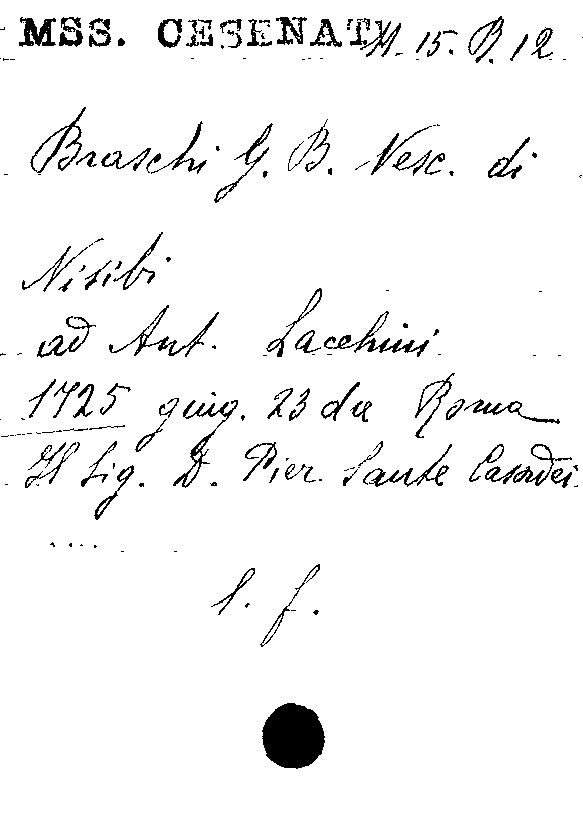 MSS. CESENATI 15. B. 12
Braschi G. B. Vesc. di
Nisibi
ad Ant. Lacchini
1725 giug. 23 da Roma
Il Sig. D. Pier Sante Casadei
....
l. f.